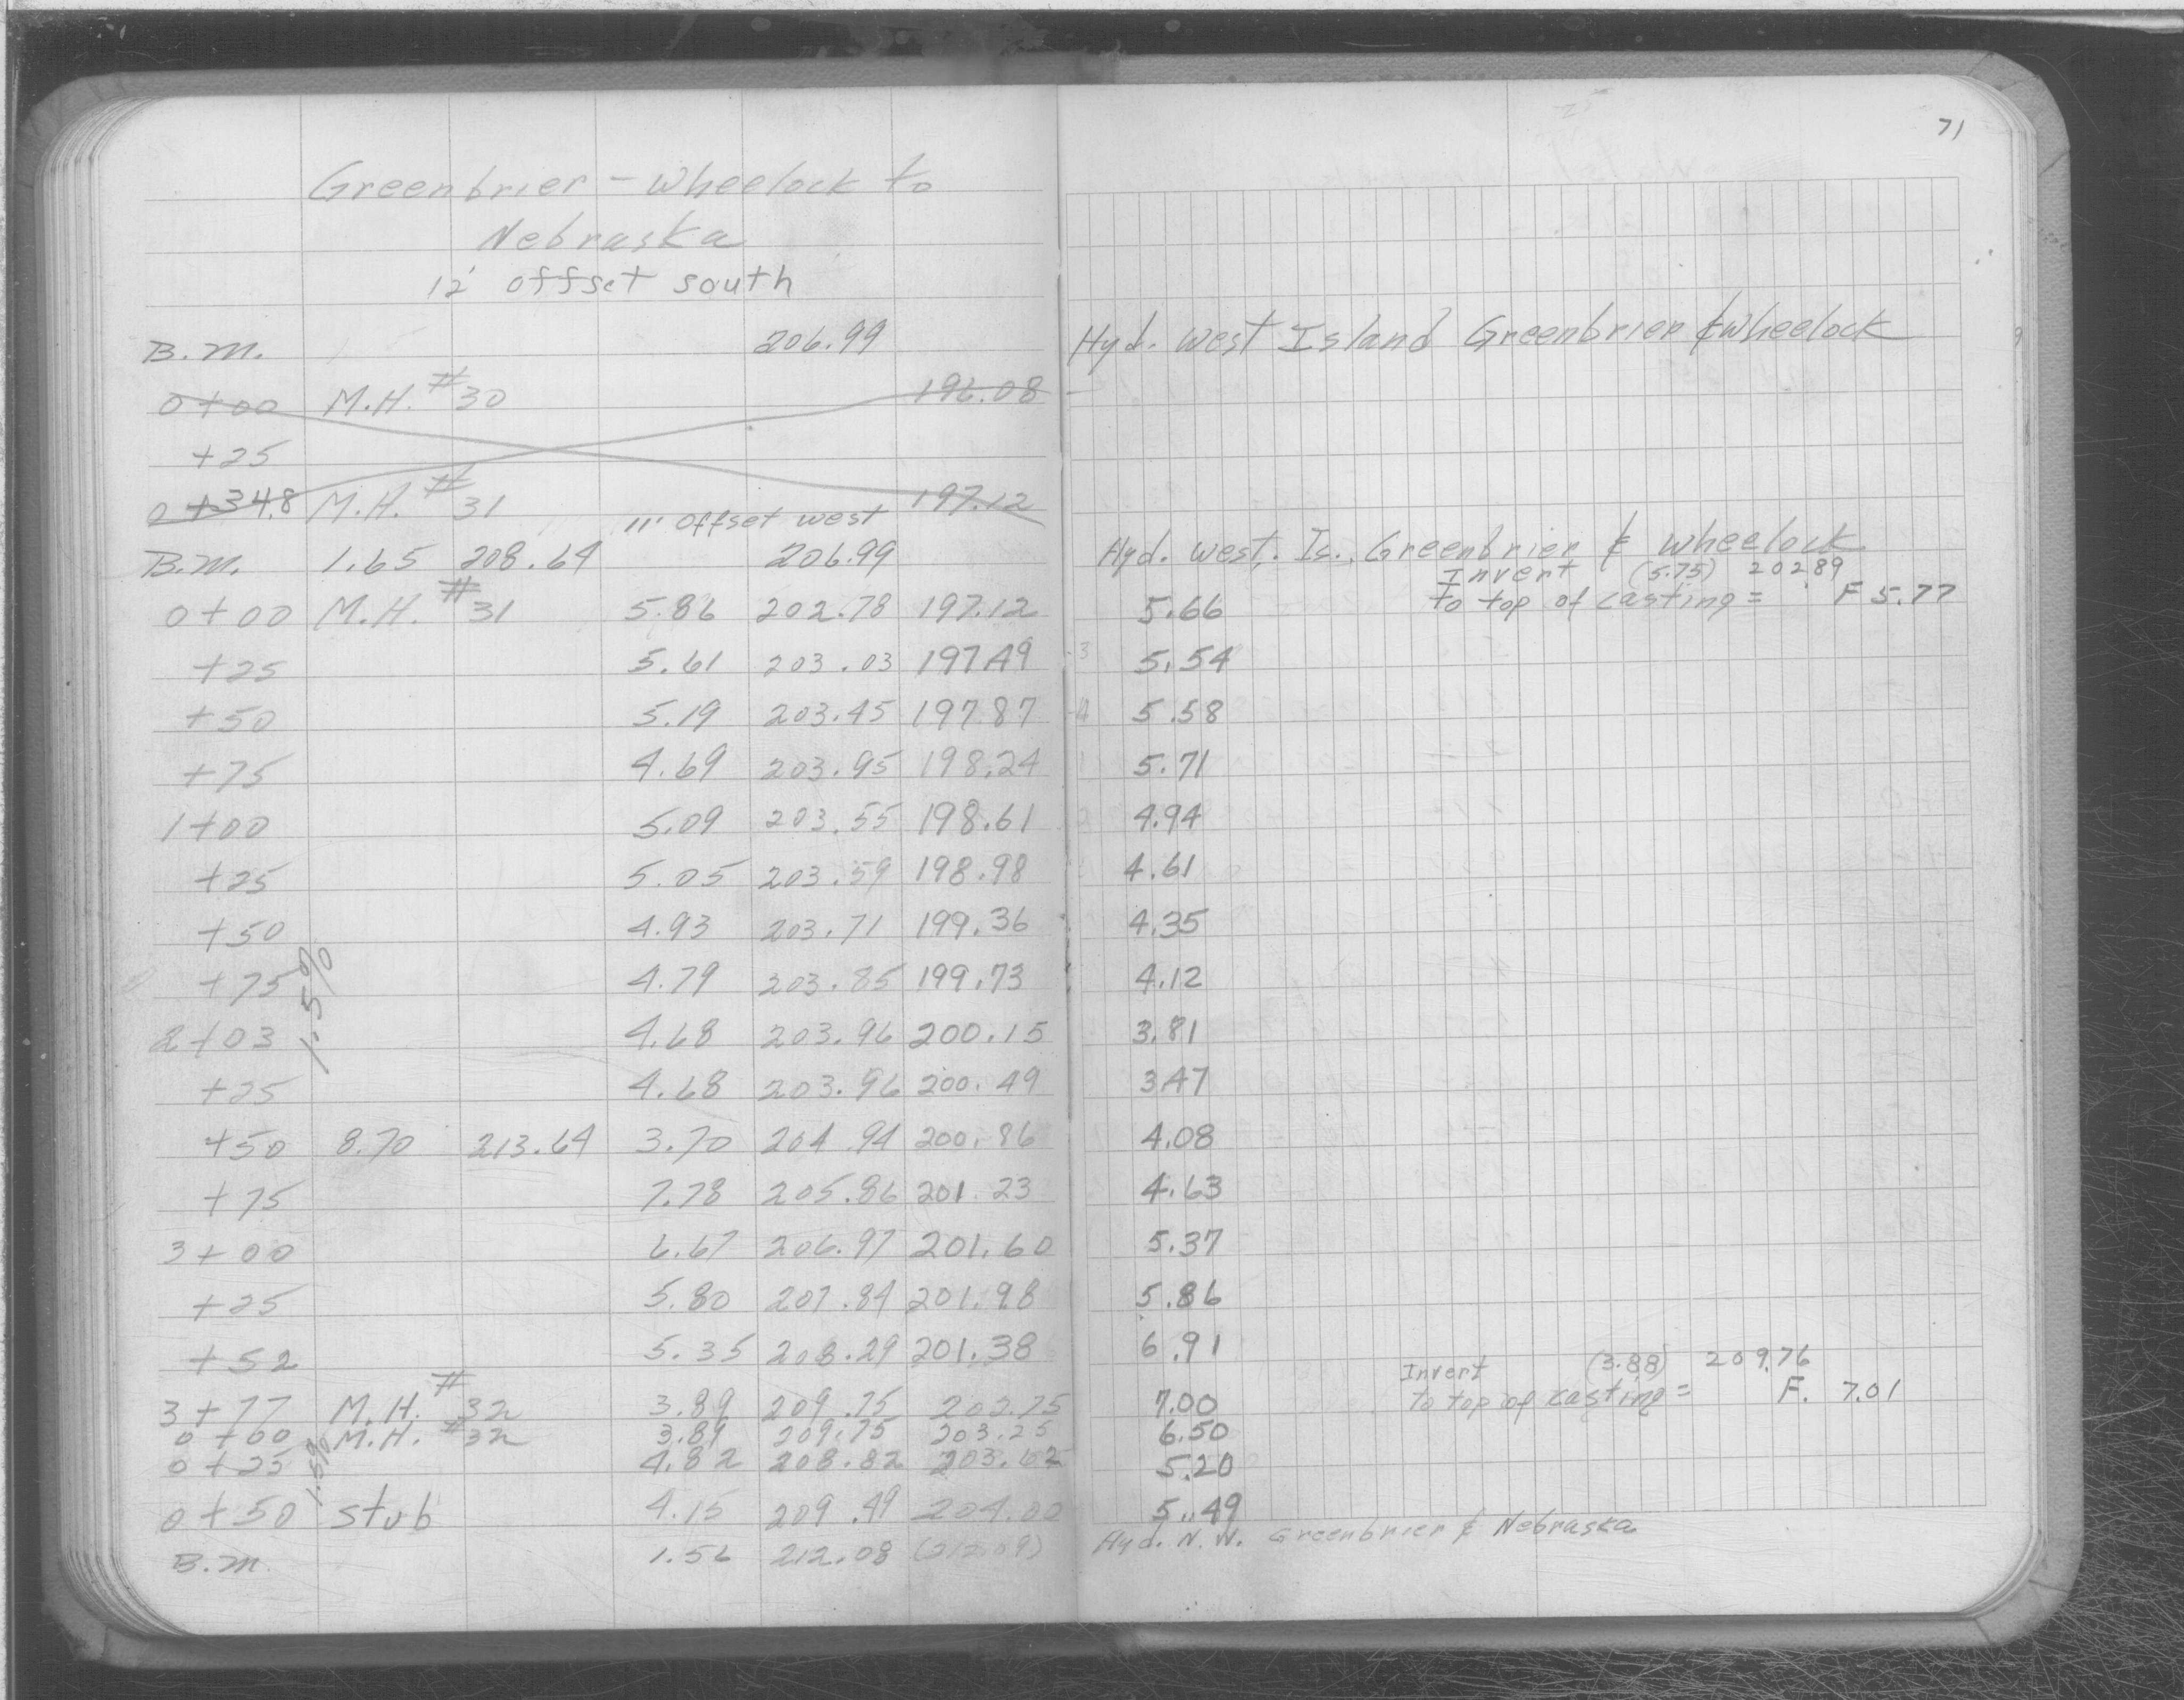 71
Greenbrier - Wheelock to
Nebraska
12' offset south
B.M. 206.99 Hyd. West Island Greenbrier & Wheelock
0+00 M.H. #30 196.08
+25
0+34.8 M.H. #31 197.12
11' offset west
B.M. 1.65 208.64 206.99 Hyd. West. Is. Greenbrier & Wheelock
Invert (5.75) 202.89
0+00 M.H. #31 5.86 202.78 197.12 5.66 to top of casting = F 5.77
+25 5.61 203.03 197.49 5.54
+50 5.19 203.45 197.87 5.58
+75 4.69 203.95 198.24 5.71
1+00 5.09 203.55 198.61 4.94
+25 5.05 203.59 198.98 4.61
+50 4.93 203.71 199.36 4.35
+75 4.79 203.85 199.73 4.12
1.5%
2+03 4.68 203.96 200.15 3.81
+25 4.68 203.96 200.49 3.47
+50 8.70 213.64 3.70 204.94 200.86 4.08
+75 7.78 205.86 201.23 4.63
3+00 6.67 206.97 201.60 5.37
+25 5.80 207.84 201.98 5.86
+52 5.35 208.29 201.38 6.91
Invert (3.88) 209.76
3+77 M.H. #32 3.89 209.75 202.75 7.00 to top of casting = F. 7.01
0+00 M.H. #32 3.89 209.75 203.25 6.50
0+25 4.82 208.82 203.62 5.20
1.5%
0+50 stub 4.15 209.49 204.00 5.49
B.M. 1.56 212.08 (212.09) Hyd. N.W. Greenbrier & Nebraska